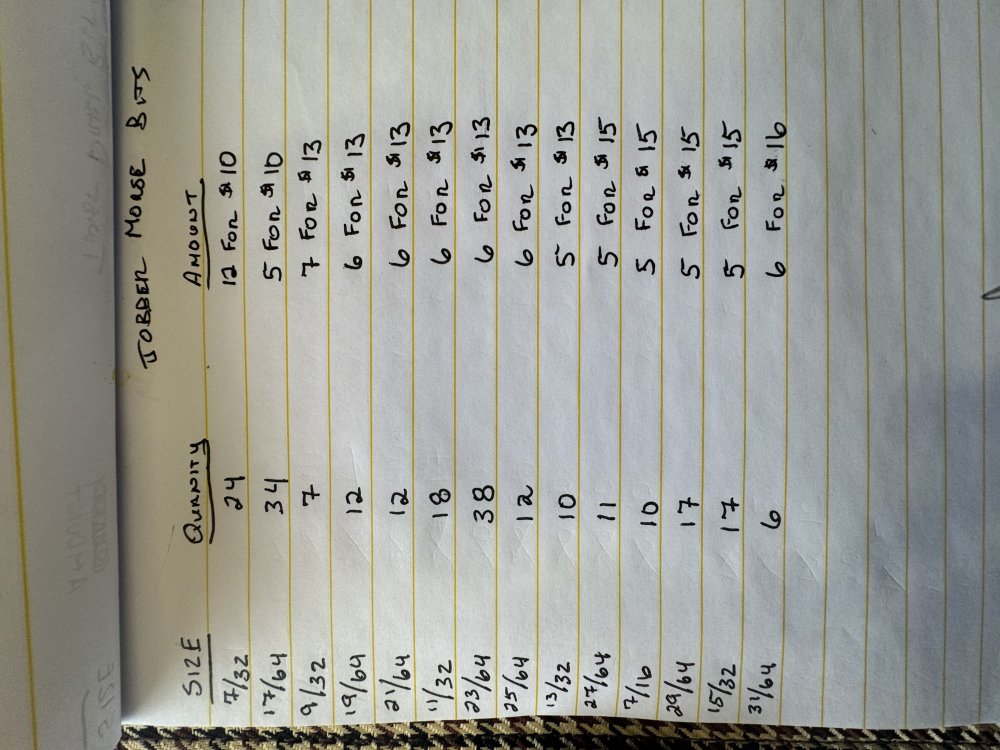 JOBBER MORSE BITS
SIZE QUANITY AMOUNT
7/32 24 12 FOR $10
17/64 34 5 FOR $10
9/32 7 7 FOR $13
19/64 12 6 FOR $13
21/64 12 6 FOR $13
11/32 18 6 FOR $13
23/64 38 6 FOR $13
25/64 12 6 FOR $13
13/32 10 5 FOR $13
27/64 11 5 FOR $15
7/16 10 5 FOR $15
29/64 17 5 FOR $15
15/32 17 5 FOR $15
31/64 6 6 FOR $16